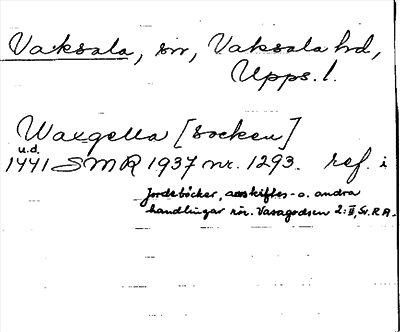 Vaksala, sn, Vaksala hd,
Upps. l.
Waxgella [socken]
u.d.
1441 SMR 1937 nr. 1293. ref. i
Jordeböcker, arvskiftes- o. andra
handlingar rör. Vasagodsen 2:II, Sv. R A.